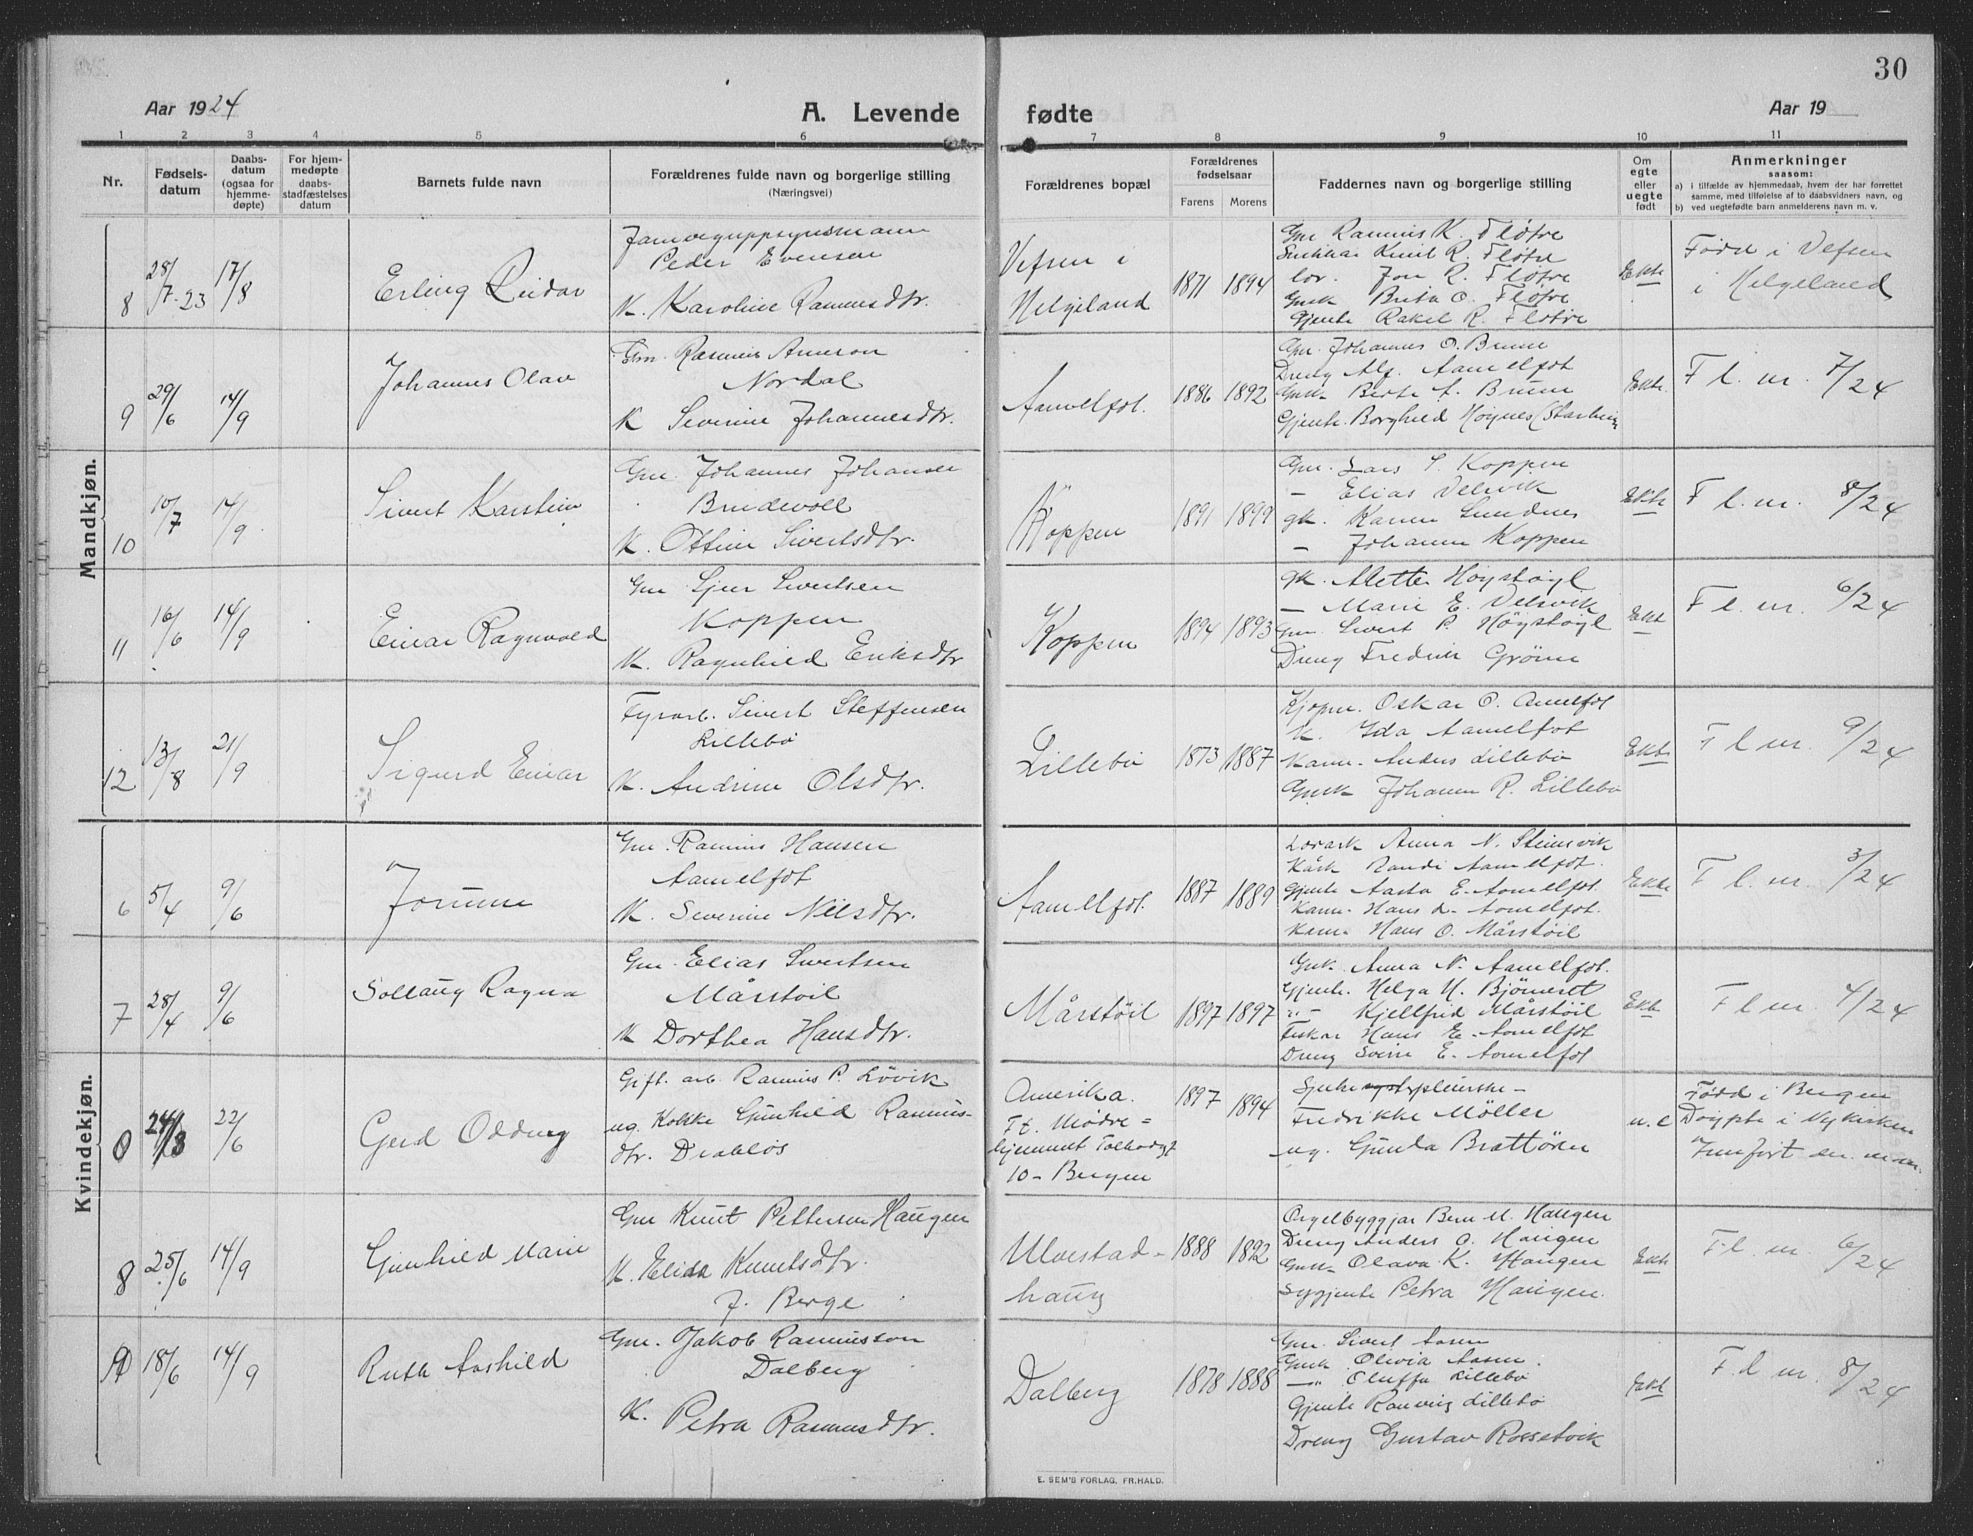 30
Aar 1924
A. Levende
fødte
Aar 19
1 2 3 4 5 6 7 8 9 10 11
Nr.
Fødsels-
datum
Daabs-
datum
(ogsaa for
hjemme-
døpte)
For hjem-
medøpte
daabs-
stadfæstelses
datum
Barnets fulde navn
Forældrenes fulde navn og borgerlige stilling
(Næringsvei)
Forældrenes bopæl
Forældrenes
fødselsaar
Farens Morens
Faddernes navn og borgerlige stilling
Om
egte
eller
uegte
født
Anmerkninger
saasom:
a) i tilfælde av hjemmedaab, hvem der har forrettet
samme, med tilføielse af to daabsvidners navn, og
b) ved uegtefødte barn anmelderens navn m. v.
Mandkjøn.
8
28/7-23
17/8
Erling Reidar
Peder Evensen
K. Karoline Rasmusdtr.
Vefsen i
Helgeland
1871 1894
Gm Rasmus K. Fløtre
Knut R. Fløtre
Jon R. Fløtre
Gmk Brita O. Fløtre
Gjente Rakel R. Fløtre
Ekte
Född i Vefsen
i Helgeland
9
29/6
14/9
Johannes Olav
Gm. Rasmus Arneson
Nordal
K Severine Johannesdtr.
Aamelfot.
1886 1892
Gm. Johannes O. Brune
Dreng Alf. Aamelfot
Gmk Berte A. Brune
Gjente. Borghild Høynes
Ekte.
F l. nr. 7/24
10
10/7
14/9
Sivert Karstein
Gm. Johannes Johansen
Brudevoll
K. Ottine Sivertsdtr.
Koppen
1891 1899
Gm. Lars S. Koppen
– Elias Velsvik
gk. Karen Sundnes
– Johanne Koppen
Ekte
F l. nr. 8/24
11
16/6
14/9
Einar Ragnvald
Gm Sjur Sivertsen
Koppen
K. Ragnhild Eriksdtr
Koppen
1894 1893
gk. Mette Høystøyl
– Marie E. Velsvik
Gm. Sivert P. Høystøyl
Dreng Fredrik Gröne
Ekt
F l. nr. 6/24
12
13/8
21/9
Sigurd Einar
Fyrarb. Sivert Steffensen
Lillebø
K. Andrine Olsdtr.
Lillebø
1873 1887
Kjøpm. Oskar O. Aamelfot
K. Yda Aamelfot
Anders Lillebø
Gmk Johanne R. Lillebø
Ekte
F l nr. 9/24
Kvindekjøn.
6
5/4
9/6
Jorunn
Gm. Rasmus Hansen
Aamelfot
K. Severine Nilsdtr.
Aamelfot.
1887 1889
Anna N. Steinsvik
Kårk Randi Aamelfot.
Gjente Aasta E. Aamelfot.
Hans L. Aamelfot.
Hans O. Mårstöil
Ekte
F l. nr. 3/24
7
28/4
9/6
Sollaug Ragna
Gm. Elias Sivertsen
Mårstöil
K Dorthea Hansdtr.
Mårstöil
1897 1897
Gmk. Anna N. Aamelfot.
Gjente. Helga H. Björneset
" – Kjellfrid Mårstöil
Fiskar Hans E. Aamelfot
Dreng Sverre E. Aamelfot
Ekte
F l nr. 4/24
0
24/3
22/6
Gerd Oddny
Gift. arb. Rasmus P. Lövik
ug. Kokke Gunhild Rasmus-
dtr. Drabløs
Amerika.
F.t. Mødre-
hjemmet
10 – Bergen
1897 1894
Fredrikke Möller
ug. Gunda Brattören
u. e
Född i Bergen
Døypte i Nykirken
8
25/6
14/9
Gunhild Marie
Gm Knut Pettersen Haugen
K. Elida Knutsdtr.
f. Berge
Ulvestad-
haug
1888 1892
Orgelbyggjar Bern M. Haugen
Dreng Anders O. Haugen
Gmk. Olava K. Haugen
Sygjente Petra Haugen.
Ekte
F l. nr 6/24
9
18/6
14/9
Ruth Aashild
Gm. Jakob Rasmusson
Dalberg
K. Petra Rasmusdtr.
Dalberg
1878 1888
Gm. Sivert Aasen
Gmk Olivia Aasen.
–"– Oluffa Lillebø
Gjente Ranveig Lillebø
Dreng Gustav Rossetvik
Ekte
F. l nr. 8/24
E. SEM'S FORLAG, FR.HALD.